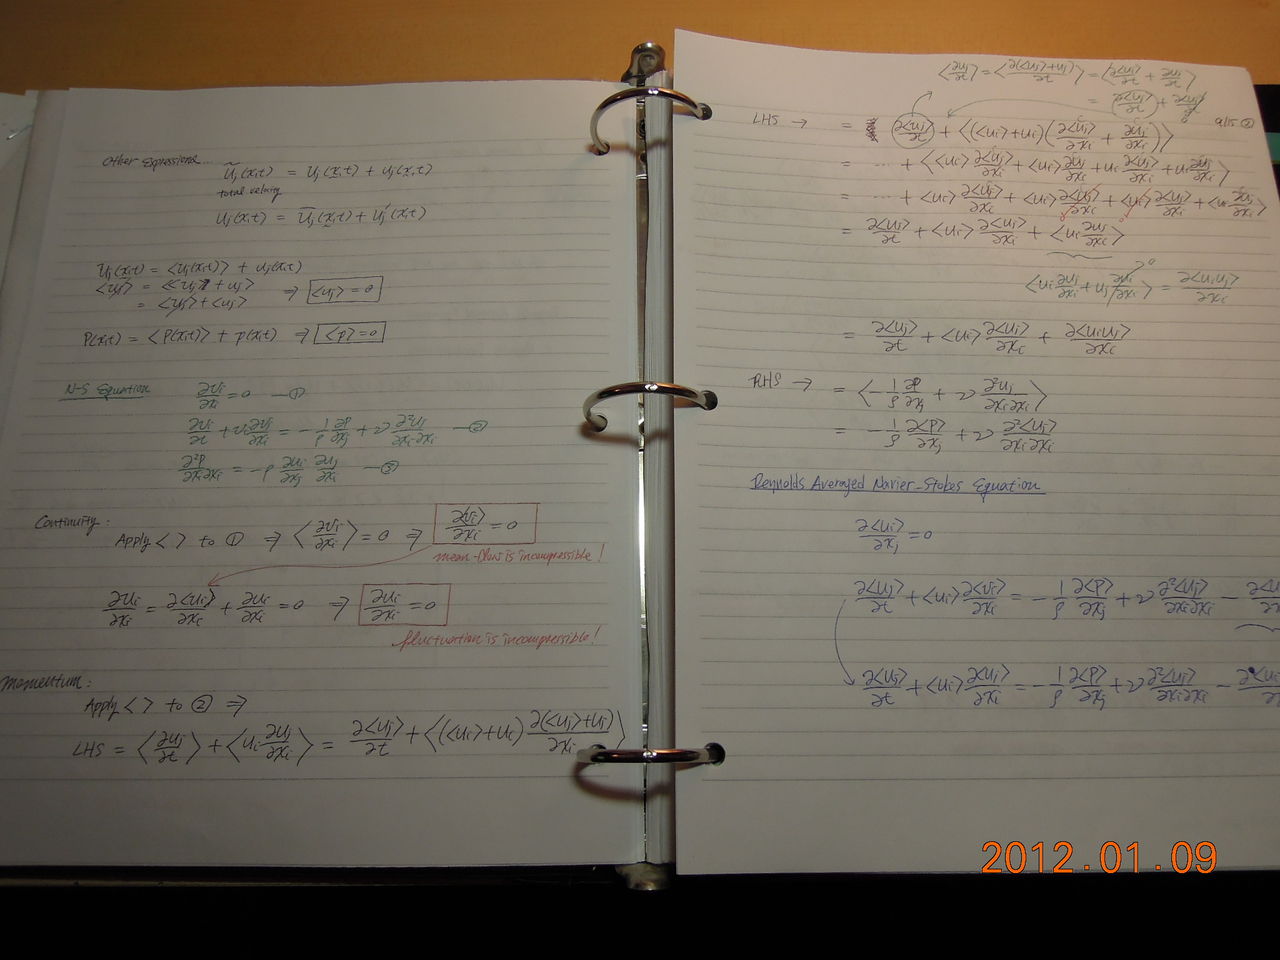 Other Expressions...
Ũj(x,t) = Uj(x,t) + uj(x,t)
total velocity
Uj(x,t) = U̅j(x,t) + uj'(x,t)
Uj(x,t) = <Uj(x,t)> + uj(x,t)
<Uj> = <<Uj> + uj> ⇒ <uj> = 0
= <Uj> + <uj>
P(x,t) = <P(x,t)> + p(x,t) ⇒ <p> = 0
N-S Equation ∂Ui/∂xi = 0 — ①
∂Uj/∂t + Ui ∂Uj/∂xi = - 1/ρ ∂P/∂xj + ν ∂²Uj/∂xi∂xi — ②
∂²P/∂xi∂xi = -ρ ∂Ui/∂xj ∂Uj/∂xi — ③
Continuity:
Apply < > to ① ⇒ <∂Ui/∂xi> = 0 ⇒ ∂<Ui>/∂xi = 0
mean-flow is incompressible!
∂Ui/∂xi = ∂<Ui>/∂xi + ∂ui/∂xi = 0 ⇒ ∂ui/∂xi = 0
fluctuation is incompressible!
Momentum:
Apply < > to ② ⇒
LHS = <∂Uj/∂t> + <Ui ∂Uj/∂xi> = ∂<Uj>/∂t + <(<Ui>+ui) ∂(<Uj>+uj)/∂xi>
<∂Uj/∂t> = <∂(<Uj>+uj)/∂t> = <∂<Uj>/∂t + ∂uj/∂t>
= ∂<Uj>/∂t + ∂<uj>/∂t
9/15 ②
LHS → = ∂<Uj>/∂t + <(<Ui>+ui)(∂<Uj>/∂xi + ∂uj/∂xi)>
= ... + <<Ui> ∂<Uj>/∂xi + <Ui> ∂uj/∂xi + ui ∂<Uj>/∂xi + ui ∂uj/∂xi>
= ... + <Ui> ∂<Uj>/∂xi + <Ui> ∂<uj>/∂xi + <ui> ∂<Uj>/∂xi + <ui ∂uj/∂xi>
0 0
= ∂<Uj>/∂t + <Ui> ∂<Uj>/∂xi + <ui ∂uj/∂xi>
<ui ∂uj/∂xi + uj ∂ui/∂xi> = ∂<uiuj>/∂xi
0
= ∂<Uj>/∂t + <Ui> ∂<Uj>/∂xi + ∂<uiuj>/∂xi
RHS → = <- 1/ρ ∂P/∂xj + ν ∂²Uj/∂xi∂xi>
= - 1/ρ ∂<P>/∂xj + ν ∂²<Uj>/∂xi∂xi
Reynolds Averaged Navier-Stokes Equation
∂<Ui>/∂xj = 0
∂<Uj>/∂t + <Ui> ∂<Uj>/∂xi = - 1/ρ ∂<P>/∂xj + ν ∂²<Uj>/∂xi∂xi -
∂<Uj>/∂t + <Ui> ∂<Uj>/∂xi = - 1/ρ ∂<P>/∂xj + ν ∂²<Uj>/∂xi∂xi -
2012.01.09